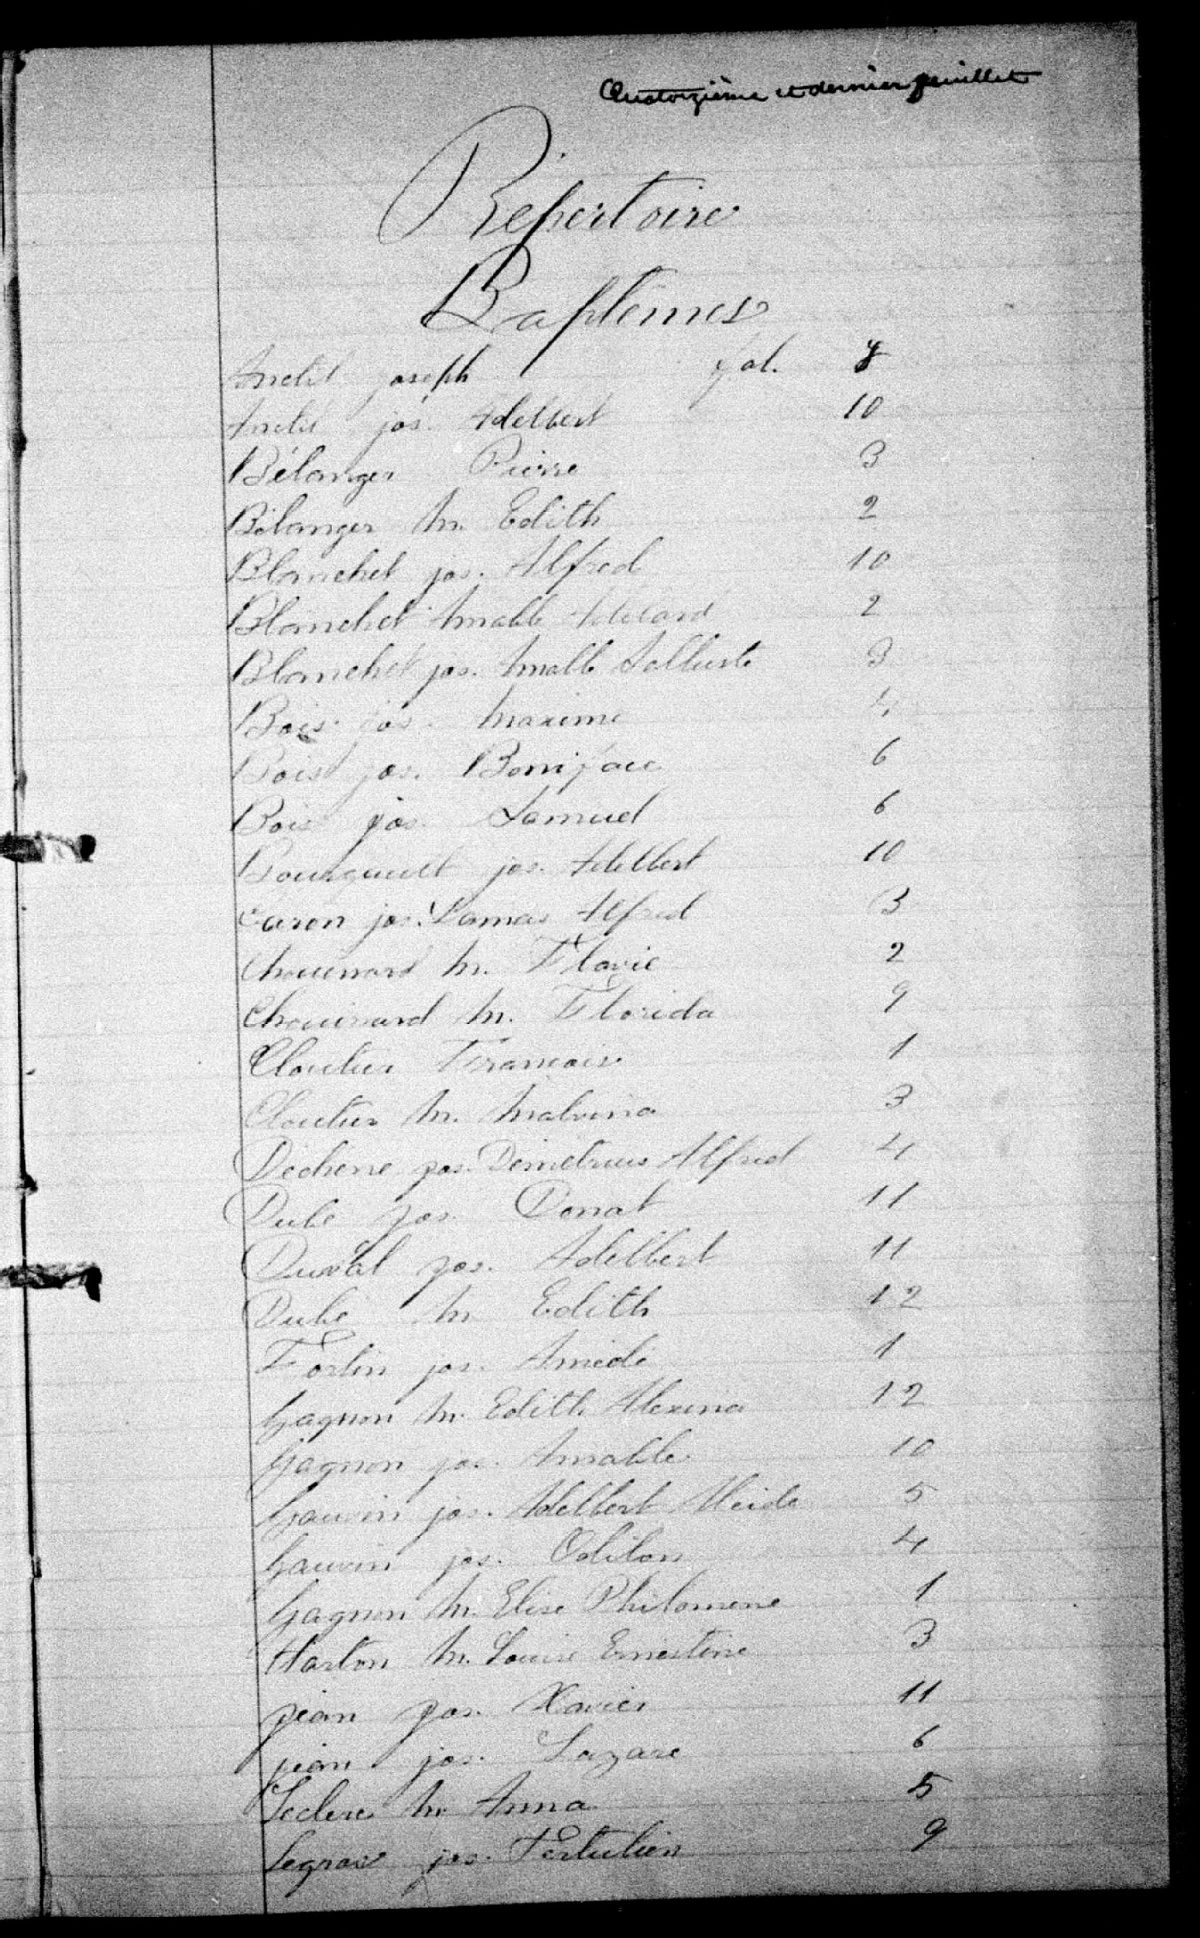 Quatorzième et dernier feuillet
Répertoire
Baptêmes
Anctil joseph fol. 8
Anctil jos. Adelbert 10
Bélanger Pierre 3
Bélanger M. Edith 2
Blanchet jos. Alfred 10
Blanchet Amable Adelard 2
Blanchet jos. Amable Salluste 3
Bois jos. Maxime 4
Bois jos. Boniface 6
Bois jos. Samuel 6
Bourgault jos. Adelbert 10
Caron jos. Damas Alfred 3
Chouinard M. Flavie 2
Chouinard M. Florida 9
Cloutier Francois 1
Cloutier M. Malvina 3
Dechene jos. Demetrius Alfred 4
Dubé jos. Donat 11
Duval jos. Adelbert 11
Dubé M. Edith 12
Fortin jos. Amedé 1
Gagnon M. Edith Alexina 12
Gagnon jos. Amable 10
Gauvin jos. Adelbert Alcide 5
Gauvin jos. Odilon 4
Gagnon M. Elise Philomene 1
Harton M. Louise Ernestine 3
jean jos. Xavier 11
jean jos. Lazare 6
Leclerc M. Anna 5
Legros jos. Tertulien 9